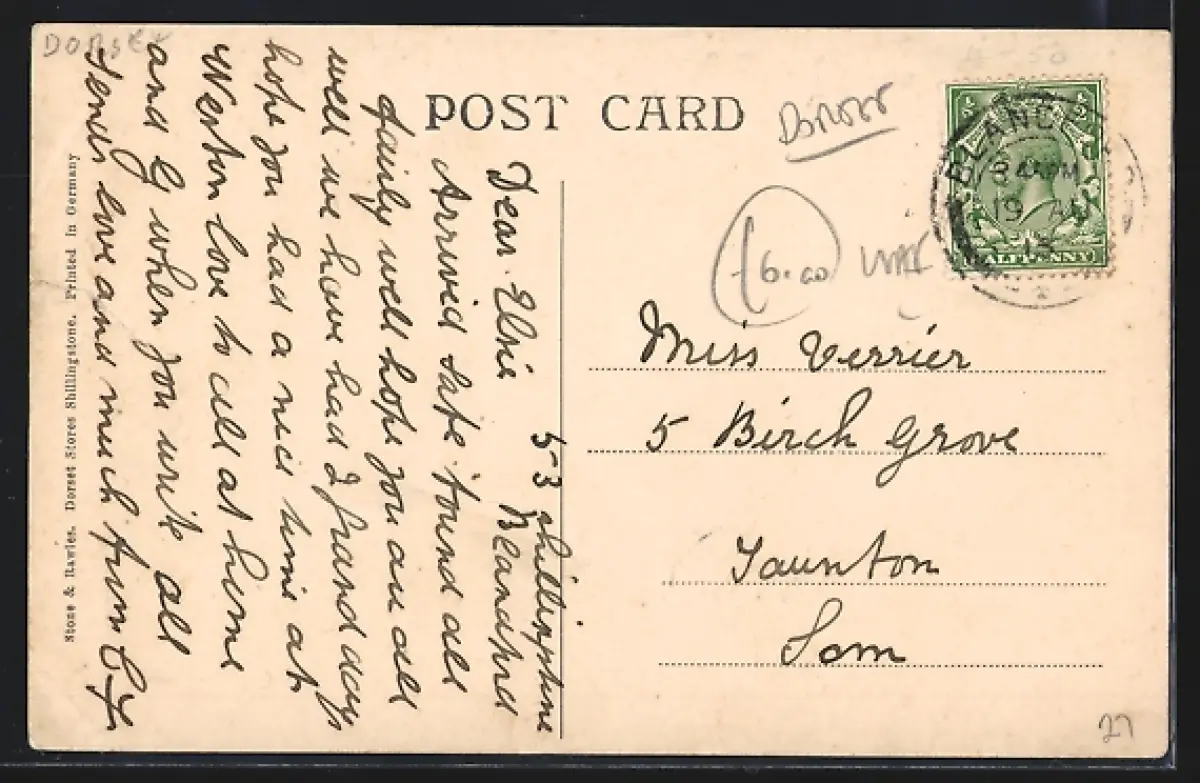 DORSET
POST CARD
Dorset
4-50
BLAND
19 AU
13
HALFPENNY
(6.00)
5-3 Shillingstone
Blandford
Dear Elsie
Arrived safe found all
fairly well hope you are all
well we have had 2 grand days
hope you had a nice time at
Weston love to all at home
and Cy when you write all
sends love and much from
Miss Verrier
5 Birch Grove
Taunton
Som
Stone & Rawles. Dorset Stores Shillingstone. Printed in Germany
27